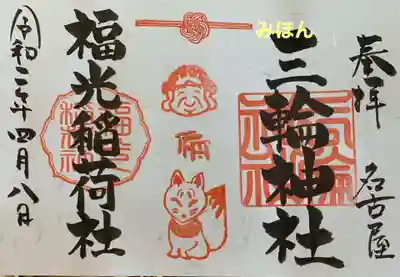 奉拝
名古屋
みほん
三輪神社
福光稲荷社
令和二年四月八日